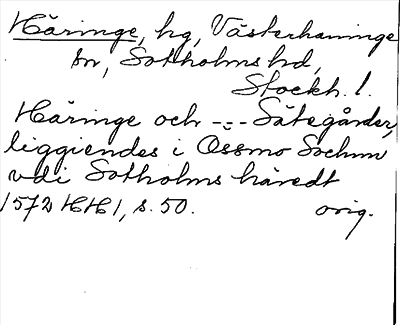 Häringe, hg, Västerhaninge
sn, Sotholms hd,
Stockh. l.
Häringe och --- Sätegårder,
liggiendes i Össmo Sochnn
vdi Sotholms häredt
1572 HH 1, s. 50. orig.